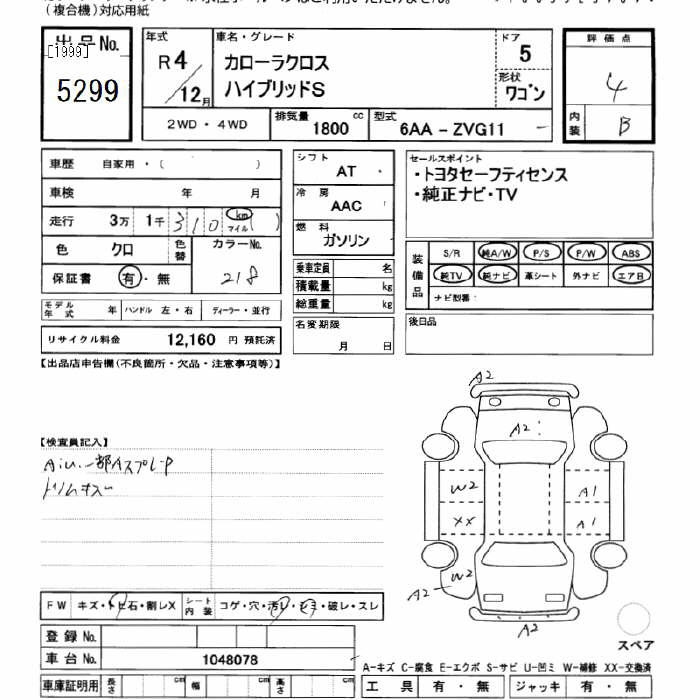 （複合機）対応用紙
出品No.
[1999]
5299
年式
R4/12月
車名・グレード
カローラクロス
ハイブリッドS
ドア
5
形状
ワゴン
評価点
4
内装
B
2WD・4WD
排気量 1800 cc
型式 6AA－ZVG11
車歴 自家用・( )
車検 年 月
走行 3万 1千 310 km マイル ( )
色 クロ
色替
カラーNo.
218
保証書 有・無
モデル年式 年 ハンドル 左・右 ディーラー・並行
リサイクル料金 12,160 円 預託済
シフト
AT
冷房
AAC
燃料
ガソリン
乗車定員 名
積載量 kg
総重量 kg
名変期限
月 日
セールスポイント
・トヨタセーフティセンス
・純正ナビ・TV
装備品
S/R 純A/W P/S P/W ABS
純TV 純ナビ 革シート 外ナビ エアB
ナビ型番：
後日品
【出品店申告欄(不良箇所・欠品・注意事項等)】
【検査員記入】
トリムキズ
A2
A2
W2
A1
XX
A1
W2
A2
A2
FW キズ・トビ石・割レX
シート内装 コゲ・穴・汚レ・シミ・破レ・スレ
登録No.
車台No. 1048078
スペア
A-キズ C-腐食 E-エクボ S-サビ U-凹ミ W-補修 XX-交換済
車庫証明用 長さ cm 幅 cm 高さ cm
工具 有・無 ジャッキ 有・無